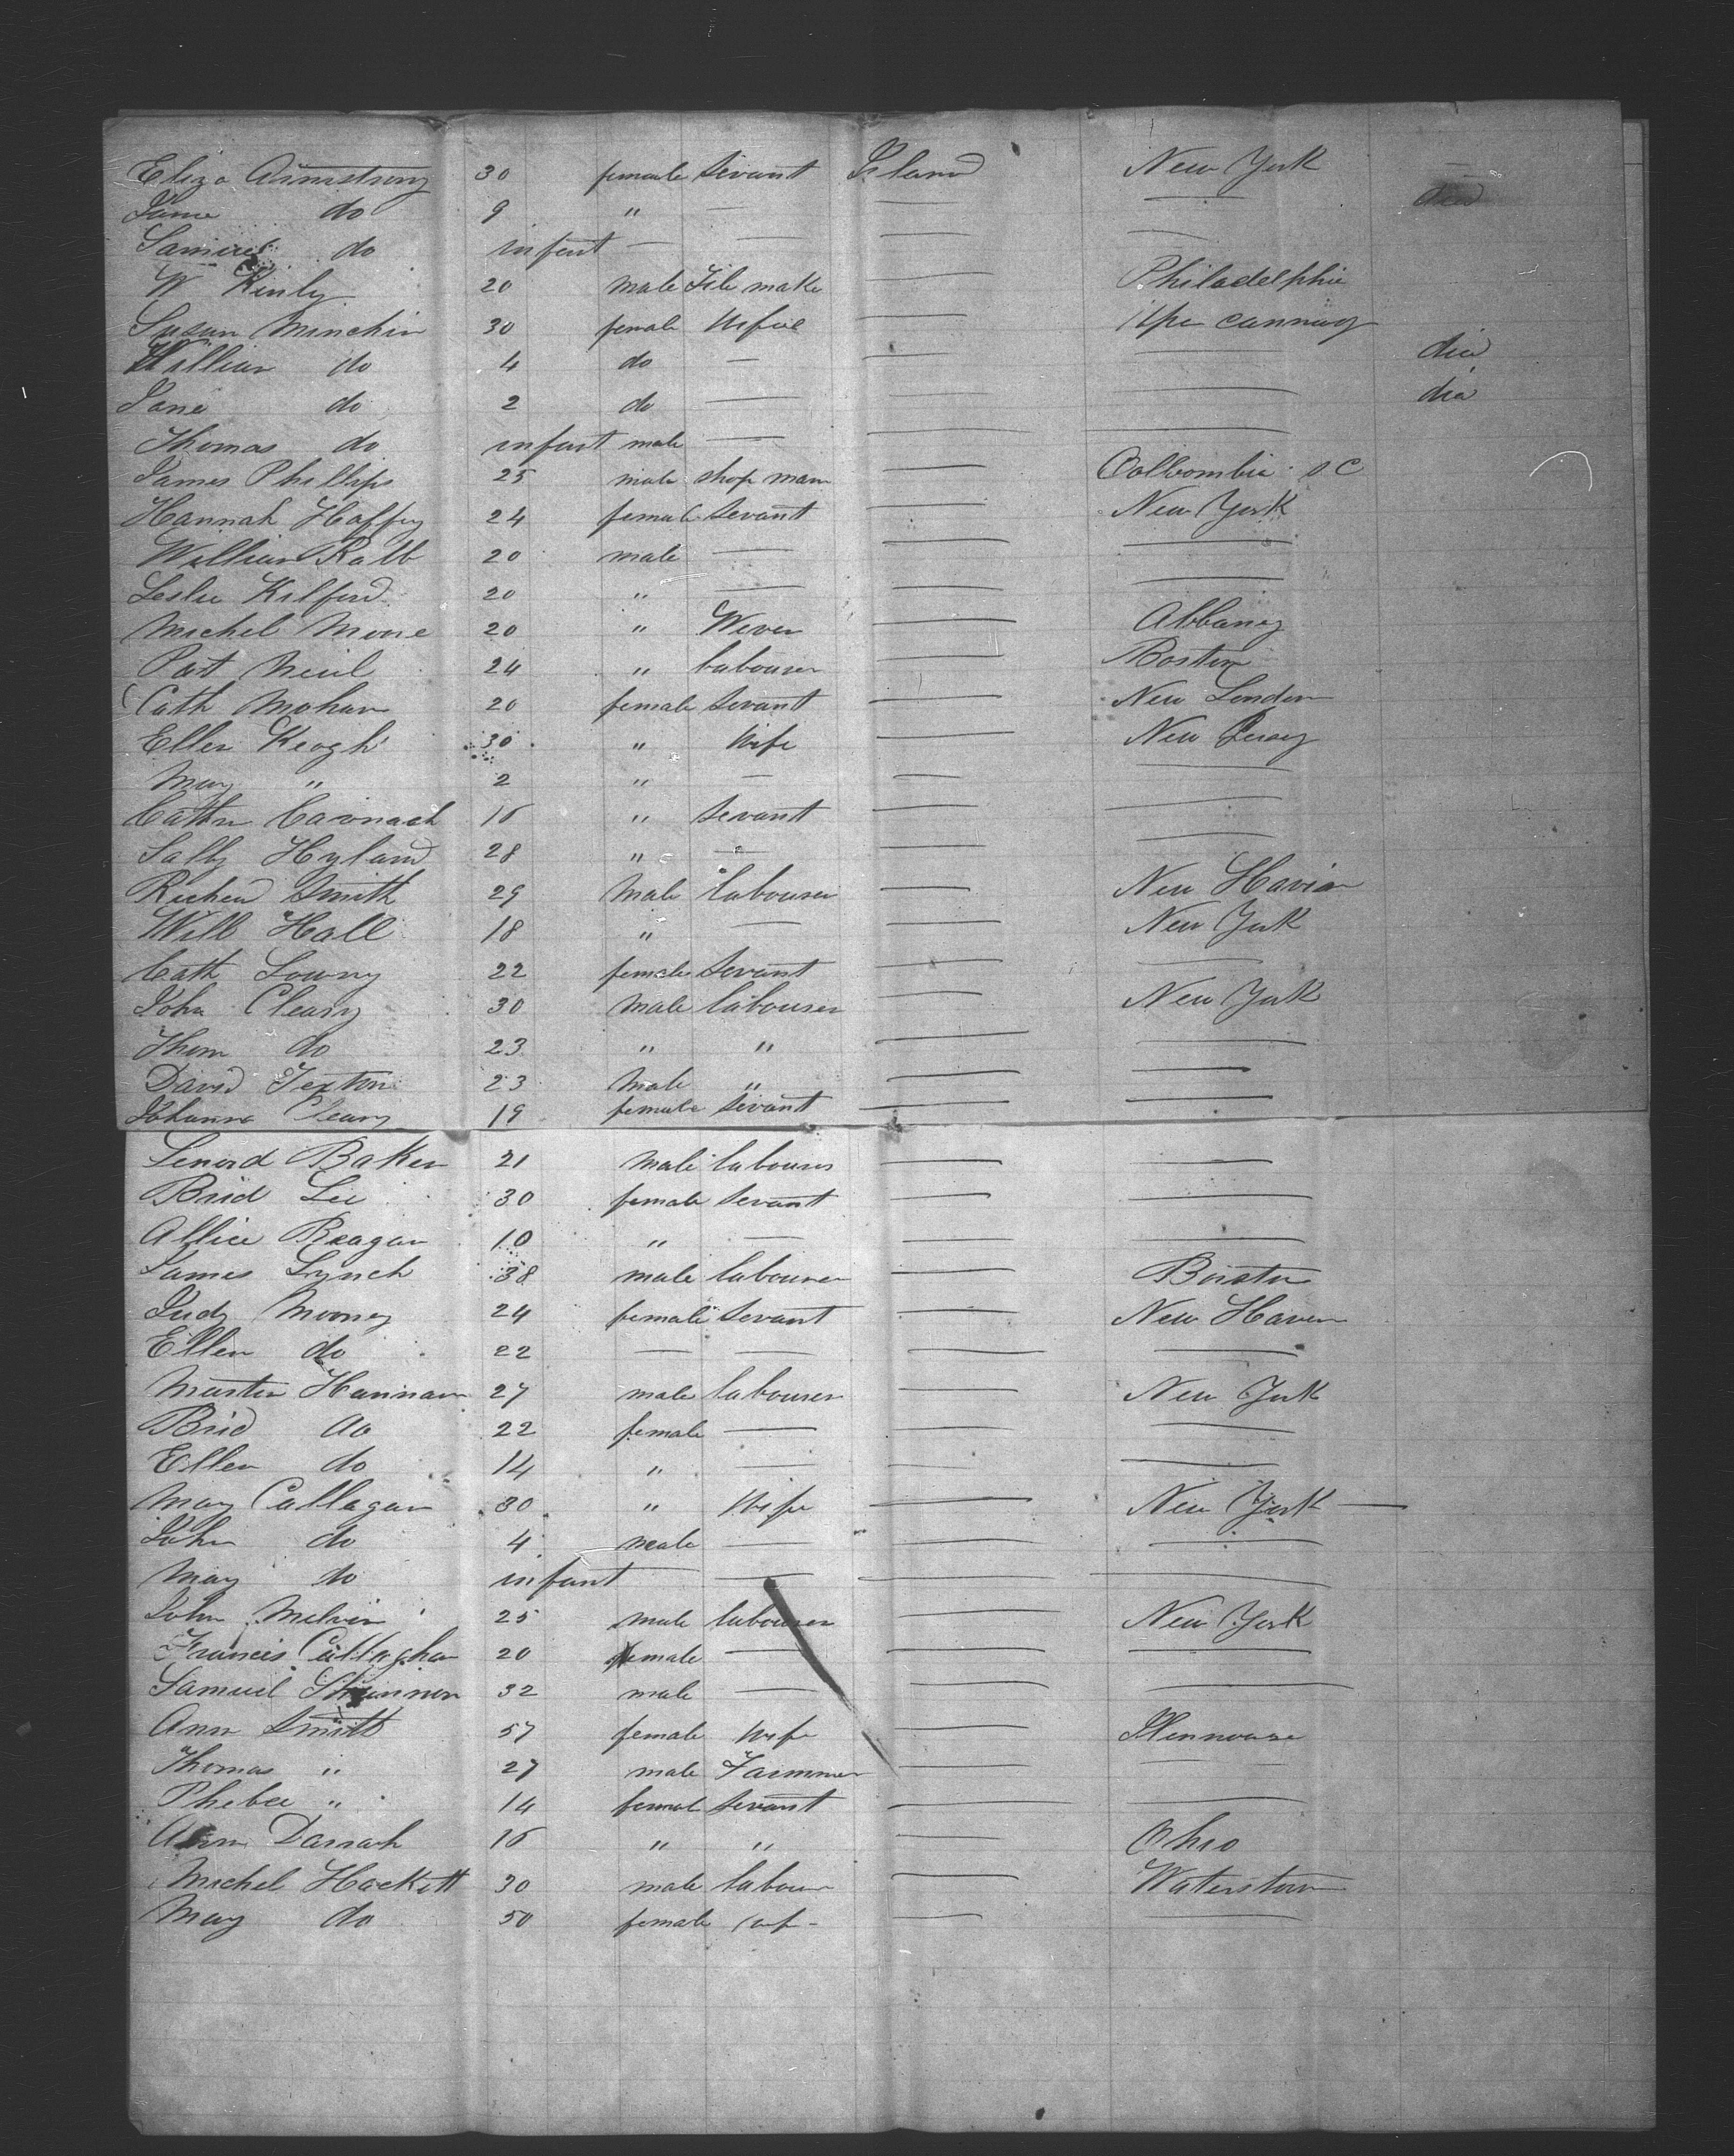 Eliza Armstrong 30 female Servant Ireland New York —
Jane do 9 " — — — died
Samuel do infant — — — —
W Kinly 20 male File make — Philadelphia
Susan Minchin 30 female Wife — Uper cannay
William do 4 do — — — died
Jane do 2 do — — — died
Thomas do infant male — — —
James Phillips 25 male shop man — Collombia S C
Hannah Haffey 24 female Servant — New York
William Ralb 20 male — — —
Leslie Kilford 20 " — — —
Michel Moore 20 " Wever — Albany
Pat Neil 24 " labourer — Boston
Cath Mohan 20 female Servant — New London
Ellen Keogh 30 " Wife — New Jersey
Mary " 2 " — — —
Cathn Cavnach 16 " Servant — —
Sally Hyland 28 " — — —
Richerd Smith 29 Male labourer — New Haven
Will Hall 18 " — — New York
Cath Lowry 22 female Servant — —
John Cleary 30 male labourer — New York
Thom do 23 " " — —
David Texton 23 Male " — —
Johanna Cleary 19 female Servant — —
Lenord Baker 21 male labourer — —
Brid Lee 30 female Servant — —
Allice Reagan 10 " — — —
James Lynch 38 male labourer — Boston
Judy Mooney 24 female Servant — New Haven
Ellen do 22 — — — —
Martin Hannan 27 male labourer — New York
Brid do 22 female — — —
Ellen do 14 " — — —
Mary Callagan 30 " Wife — New York —
John do 4 male — — —
Mary do infant — — — —
John Melvin 25 male labourer — New York
Francis Callaghan 20 female — — —
Samuel 32 male — — —
Ann Smith 57 female Wife —
Thomas " 27 male Farmmer — —
Phebee " 14 female Servant — —
Ann Darrach 16 " " — Ohio
Michel Hackett 30 male labour — Waterstown
Mary do 50 female wif — —